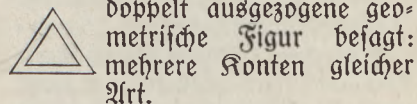 doppelt ausgezogene geo-
metrische Figur besagt:
mehrere Konten gleicher
Art.